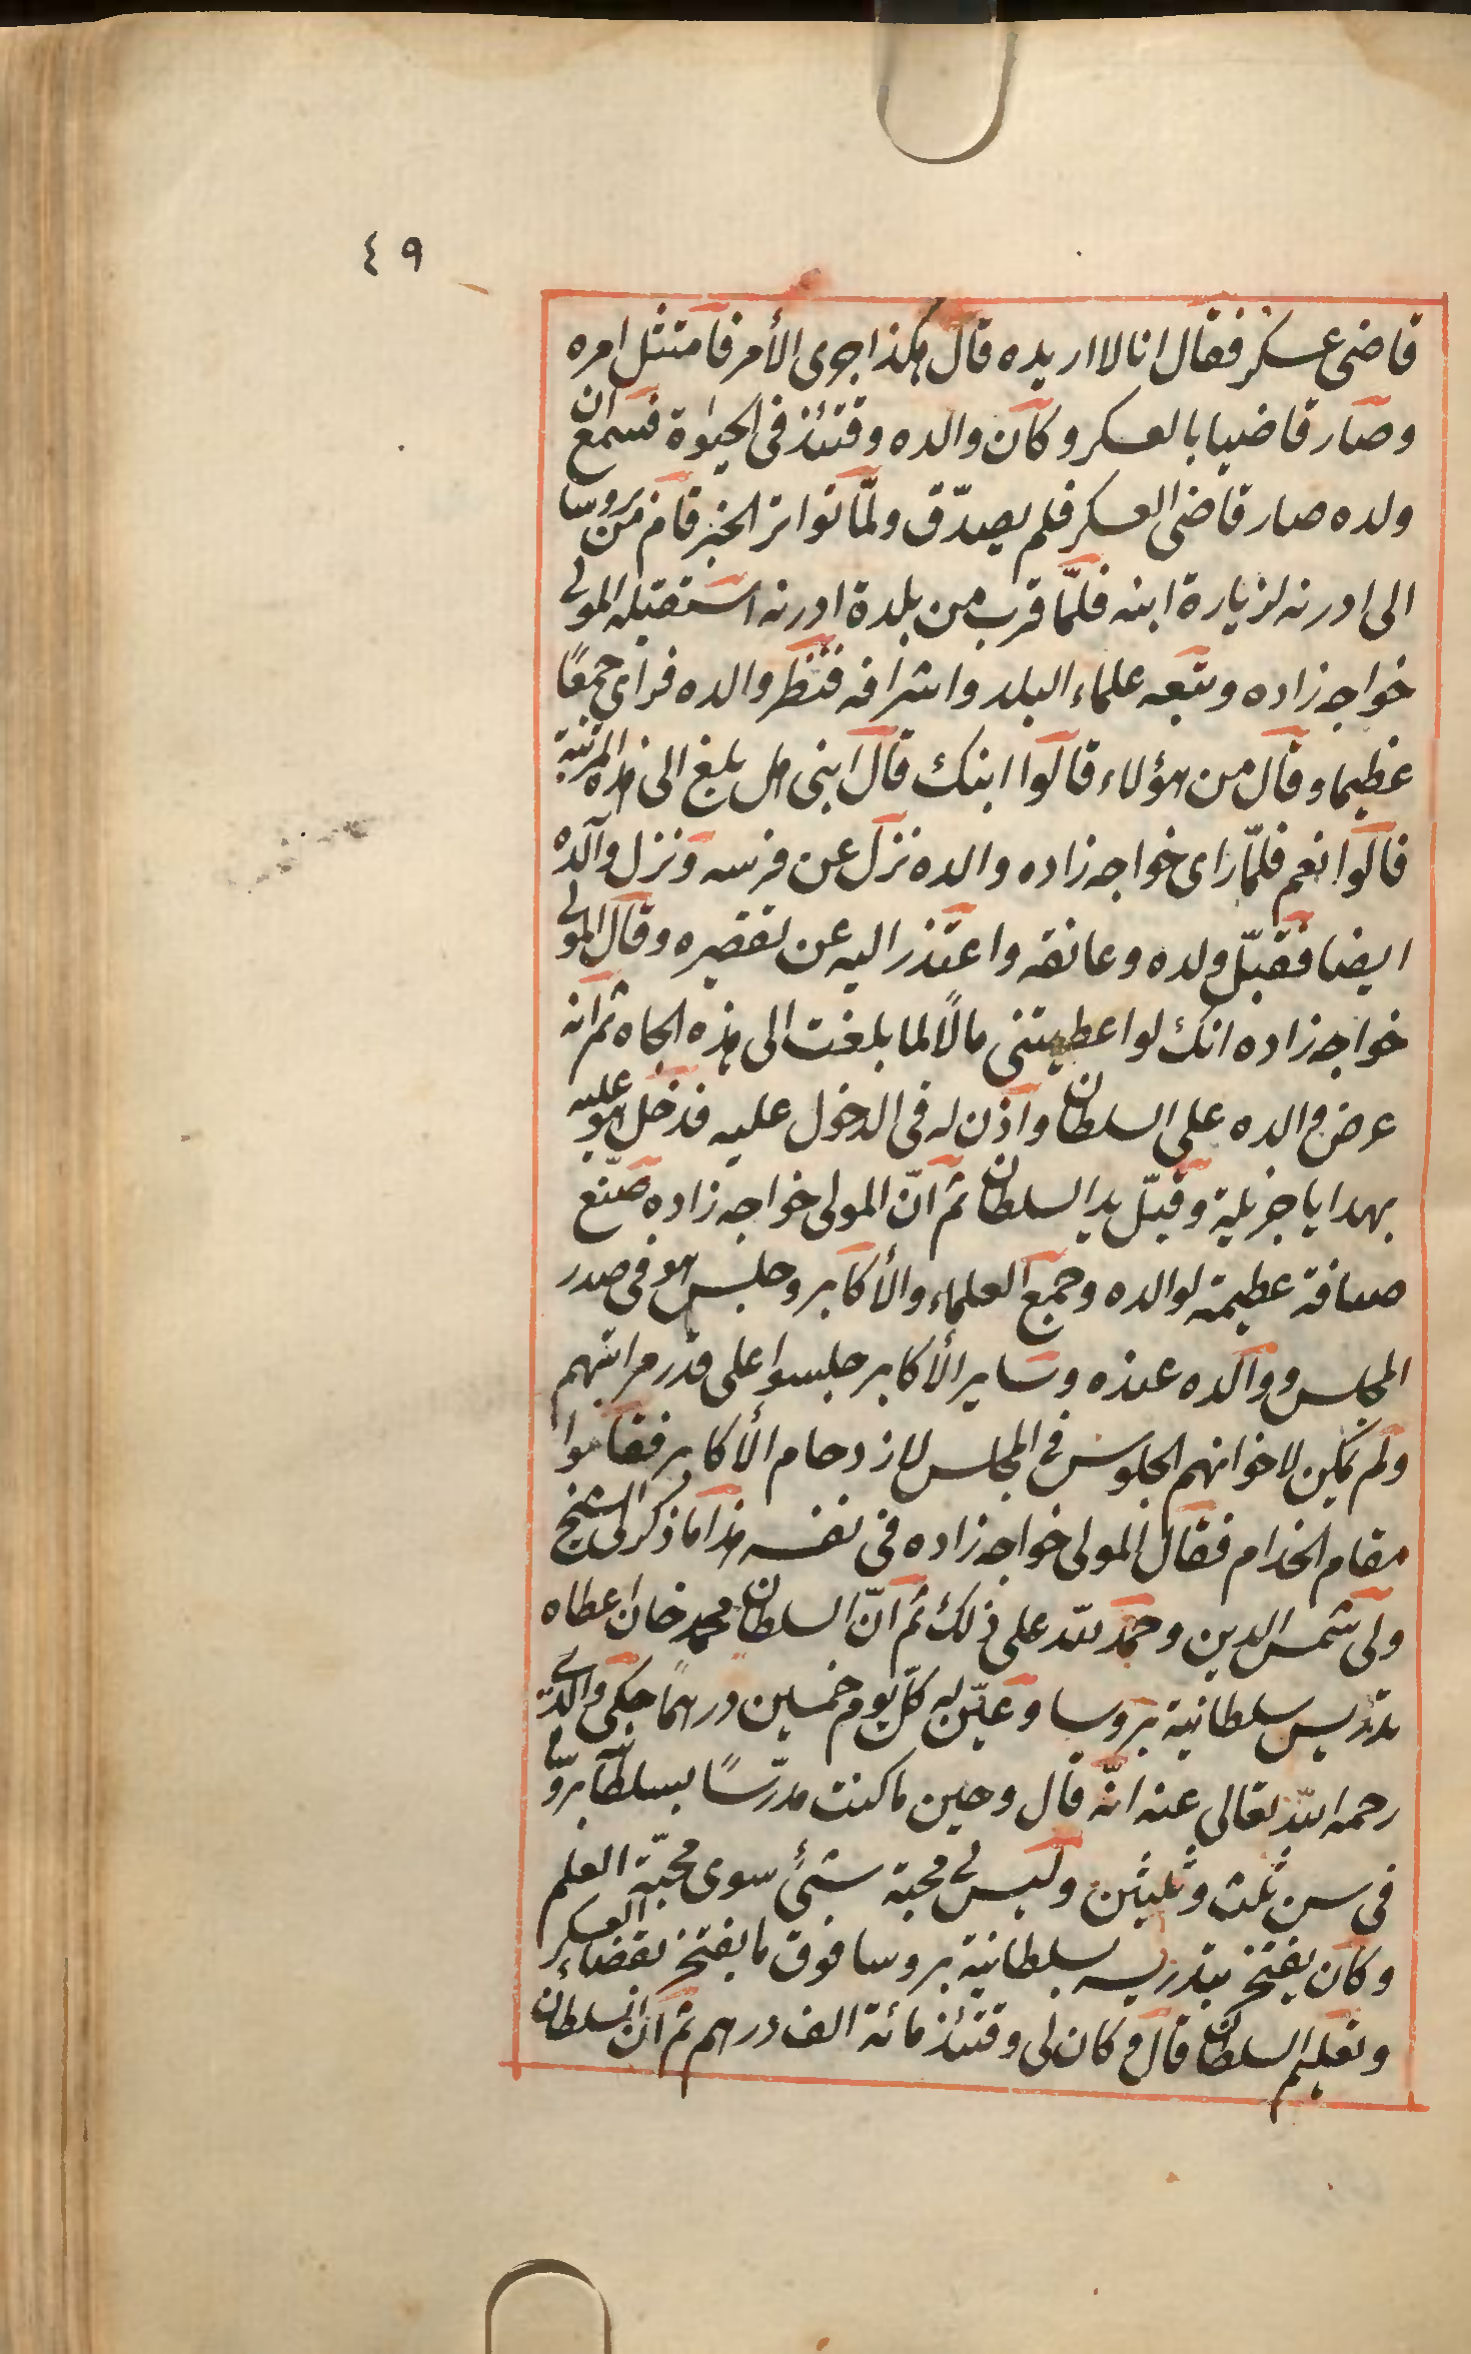 ٤٩
قاضى عسكر فقال انا لا اريده قال هكذا جرى الأمر فامتثل امره
وصار قاضيا بالعسكر وكان والده وقتئذ فى الحيوة فسمع ان
ولده صار قاضى العسكر فلم يصدّق ولمّا تواتر الخبر قام من بروسا
الى ادرنه لزيارة ابنه فلمّا قرب من بلدة ادرنه استقبله المولى
خواجه زاده وتبعه علماء البلد واشرافه فنظر والده فراى جمعًا
عظيما وقال من هؤلاء قالوا ابنك قال ابنى هل بلغ الى هذه المرتبة
قالوا نعم فلمّا راى خواجه زاده والده نزل عن فرسه ونزل والده
ايضا فقبّل ولده وعانقه واعتذر اليه عن تقصيره وقال المولى
خواجه زاده انك لو اعطيتنى مالًا لما بلغت الى هذه الجاه ثم انه
عرض والده على السلطان واذن له فى الدخول عليه فدخل هو عليه
بهدايا جزيلة وقبّل يد السلطان ثم انّ المولى خواجه زاده صنّع
ضيافة عظيمة لوالده وجمع العلماء والأكابر وجلس هو فى صدر
المجلس ووالده عنده وساير الأكابر جلسوا على قدر مراتبهم
ولم يمكن لاخوانهم الجلوس فى المجلس لازدحام الأكابر فقاموا
مقام الخدام فقال المولى خواجه زاده فى نفسه هذا ما ذكر لى الشيخ
ولى شمس الدين وحمد لله على ذلك ثم انّ السلطان محمد خان اعطاه
تدريس سلطانية بروسا وعيّن له كلّ يوم خمسين درهمًا حكى والدى
رحمه الله تعالى عنه انّه قال وحين ما كنت مدرّسًا بسلطا بروسا
فى سن ثلث وثلثين وليس لى محبة شئ سوى محبّة العلم
وكان يفتخر بتدريسه بسلطانية بروسا فوق ما يفتخر بقضاء العسكر
وتعليم السلطان قال وكان لى وقتئذ مائة الف درهم ثم ان السلطان